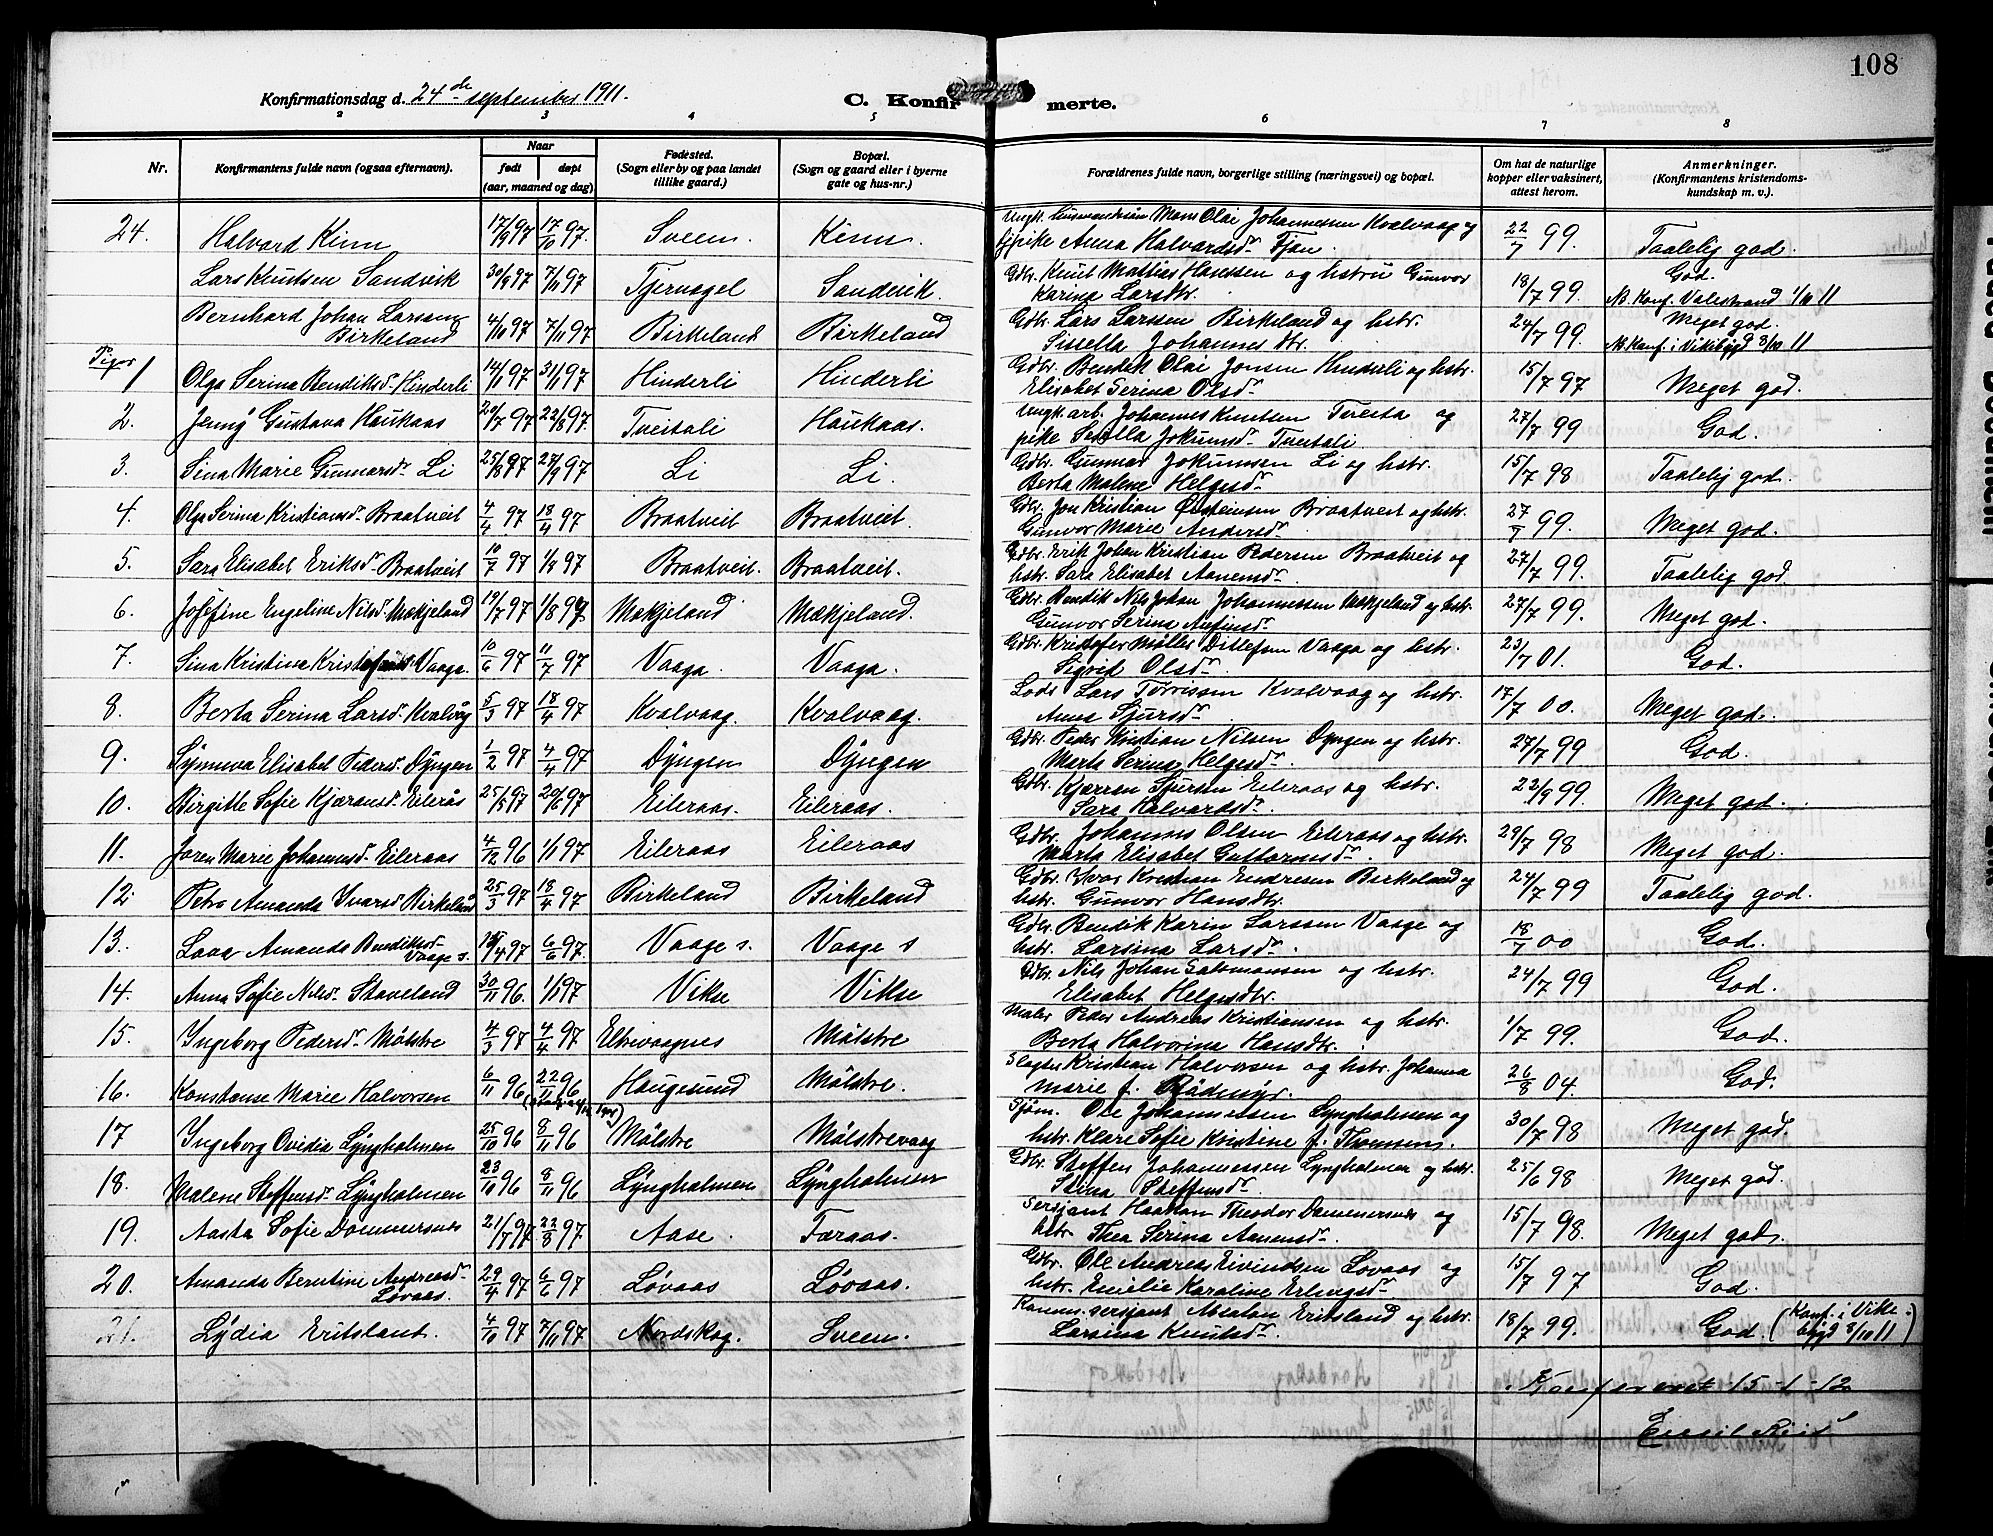 108
Konfirmationsdag d. 24de september 1911.
C. Konfirmerte.
2 3 4 5 6 7 8
Nr.
Konfirmantens fulde navn (ogsaa efternavn).
Naar
født døpt
(aar, maaned og dag)
Fødested.
(Sogn eller by og paa landet tillike gaard.)
Bopæl.
(Sogn og gaard eller i byerne gate og hus-nr.)
Forældrenes fulde navn, borgerlige stilling (næringsvei) og bopæl.
Om hat de naturlige kopper eller vaksinert, attest herom.
Anmerkninger.
(Konfirmantens kristendomskundskap m. v.).
24. Halvard Kinn 17/9 97 17/10 97. Sveen. Kinn. Ungk. husmandssøn Mons Olai Johannessen Kvalvaag og pike Anna Halvardsd. Tjøn. 22/7 99. Taalelig god.
Lars Knutsen Sandvik 30/9 97 7/11 97 Tjernagel Sandvik. Gdbr. Knut Mattias Hanssen og hstru Gunvor Karina Larsdtr. 18/7 99. God. NB. Konf. Valestrand 1/10 11
Bernhard Johan Larssen Birkeland 4/10 97 7/11 97 Birkeland Birkeland Gdbr. Lars Larssen Birkeland og hstr. Sissella Johannesdtr. 24/7 99. Meget god. NB. Konf. i Vikebygd 8/10 11
Piger
1 Olga Serina Bendiksd. Hinderli 14/1 97 31/1 97 Hinderli Hinderli Gdbr. Bendik Olai Jonsen Hinderli og hstr. Elisabet Serina Olsdr. 15/7 97 Meget god.
2. Jenny Gustava Haukaas 20/7 97 22/8 97. Tveitali Haukaas. Ungk. arb. Johannes Knutsen og pike Sisella Jokumsd. Tveitali 27/7 99 God.
3. Sina Marie Gunnarsdr Li 25/8 97 Li Li. Gdbr. Gunnar Jokumsen Li og hstr. Berta Malene Helgesdr. 15/7 98 Taalelig god.
4. Olga Serina Kristiansd. Braatveit 4/4 97 18/4 97 Braatveit Braatveit. Gdbr. Jon Kristian Østensen Braatveit og hstr. Gunvor Marie Andersd. 27/7 99. Meget god.
5. Sara Elisabet Eriksdr Braatveit 10/7 97 1/8 97 Braatveit. Braatveit. Gdbr. Erik Johan Kristian Pedersen Braatveit og hstr. Sara Elisabet Aanensdr. 27/7 99. Taalelig god.
6. Josefine Engeline Nilsd. Mækjeland 19/7 97 1/8 97 Mækjeland Mækjeland. Gdbr. Bendik Nils Johan Johannessen Mækjeland og hstr. Gunvor Serina 27/7 99. Meget god.
7. Sina Kristine Kristofersd. Vaaga. 10/6 97 11/7 97 Vaaga. Vaaga. Gdbr. Kristofer Møller Ditlefsen Vaaga og hstr. Sigrid Olsdr. 23/7 01. God.
8. Berta Serina Larsdr Kvalvåg 5/3 97 18/4 97 Kvalvaag. Kvalvaag. Lods Lars Tørressen Kvalvaag og hstr. Anna Sjursdr. 17/7 00. Meget god.
9. Synneva Elisabet Pedersd. Dyngen 1/2 97 4/4 97 Dyngen Dyngen Gdbr. Peder Kristian Nilsen Dyngen og hstr. Marta Serina Helgesdr. 27/7 99 God.
10. Birgitte Sofie Kjæransd. Eilerås 25/5 97 20/6 97 Eileraas. Eileraas. Gdbr. Kjæran Sjursen Eileraas og hstr. Sara Halvardsdr. 22/9 99. Meget god.
11. Joren Marie Johannesd. Eileraas 4/12 96 1/1 97 Eileraas Eileraas Gdbr. Johannes Olsen Eileraas og hstr. Marta Elisabet Guttormsdr. 29/7 98 Meget god.
12. Petra Amanda Ivarsd. Birkeland 25/3 97 18/4 97 Birkeland Birkeland Gdbr. Ivar Kristian Endresen Birkeland og hstr. Gunvor Hansdtr. 24/7 99 Taalelig god.
13. Amanda Bendiksd. Vaage s. 97 6/6 97. Vaage s. Vaage s Gdbr. Bendik Karin Larssen Vaage og hstr. Larsina Larsdr. 18/7 00 God.
14. Anna Sofie Nilsdr Staveland 30/11 96. 1/1 97 Vikse Vikse Gdbr. Nils Johan Salomonsen og hstr. Elisabet Helgesdtr. 24/7 99 God.
15. Ingeborg Pedersdr Mølstre 4/3 97 4/4 97 Eltrevaagnes Mølstre Maler Peder Andreas Kristiansen og hstr. Berta Halvorina Hansdtr. 1/7 99. God.
16. Konstanse Marie Halvorsen 6/11 96 22/11 96 Haugesund Mølstre. Slagter Kristian Halvorsen og hstr. Johanna Marie f. Rødmyr. 26/8 04. God.
17 Ingeborg Ovidia Lyngholmen 25/10 96 8/11 96 Mølstre Mølstrevaag Sjøm. Ole Johannessen Lyngholmen og hstr. Klara Sofie Kristine f. Thomsen. 30/7 98 Meget god.
18. Malene Steffensdr Lyngholmen 23/10 96 8/11 96 Lyngholmen Lyngholmen Gdbr. Steffen Johannessen Lyngholmen og hstr. Stina Steffensdr. 25/6 98 Meget god.
19. Aasta Sofie Dommersnes 21/7 97 22/8 97 Aase. Færaas. Sersjant Haakon Theodor Dommersnes og hstr Thea Serina Aanensdr. 15/7 98. Meget god.
20. Amanda Berntine Andreasdr Løvaas. 29/4 97 6/6 97 Løvaas Løvaas. Gdbr. Ole Andreas Eivindsen Løvaas og hstr. Emilie Karoline Erlingsdr 15/7 97 God.
21. Lydia Eritsland. 4/10 97 7/11 97 Nordskog. Sveen. sersjant Absalon Eritsland og hstr. Larsina Knutsdr. 18/7 99. God. (Konf. i Vikebygd 8/10 11)
Konfereret 15-1-12
Emil Riis